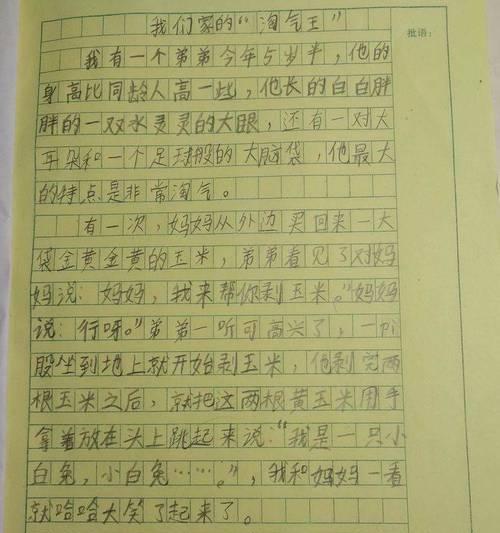 我们家的“淘气王”
批语：
我有一个弟弟今年5岁半，他的
身高比同龄人高一些，他长的白白胖
胖的一双水灵灵的大眼，还有一对大
耳朵和一个足球般的大脑袋，他最大
的特点是非常淘气。
有一次，妈妈从外边买回来一大
袋金黄金黄的玉米，弟弟看见了对妈
妈说：妈妈，我来帮你剥玉米。”妈妈
说：行呀。”弟弟一听可高兴了，一pi
股坐到地上就开始剥玉米，他剥完两
根玉米之后，就把这两根黄玉米用手
拿着放在头上跳起来说：“我是一只小
白兔，小白兔……。”，我和妈妈一看
就哈哈大笑了起来了。